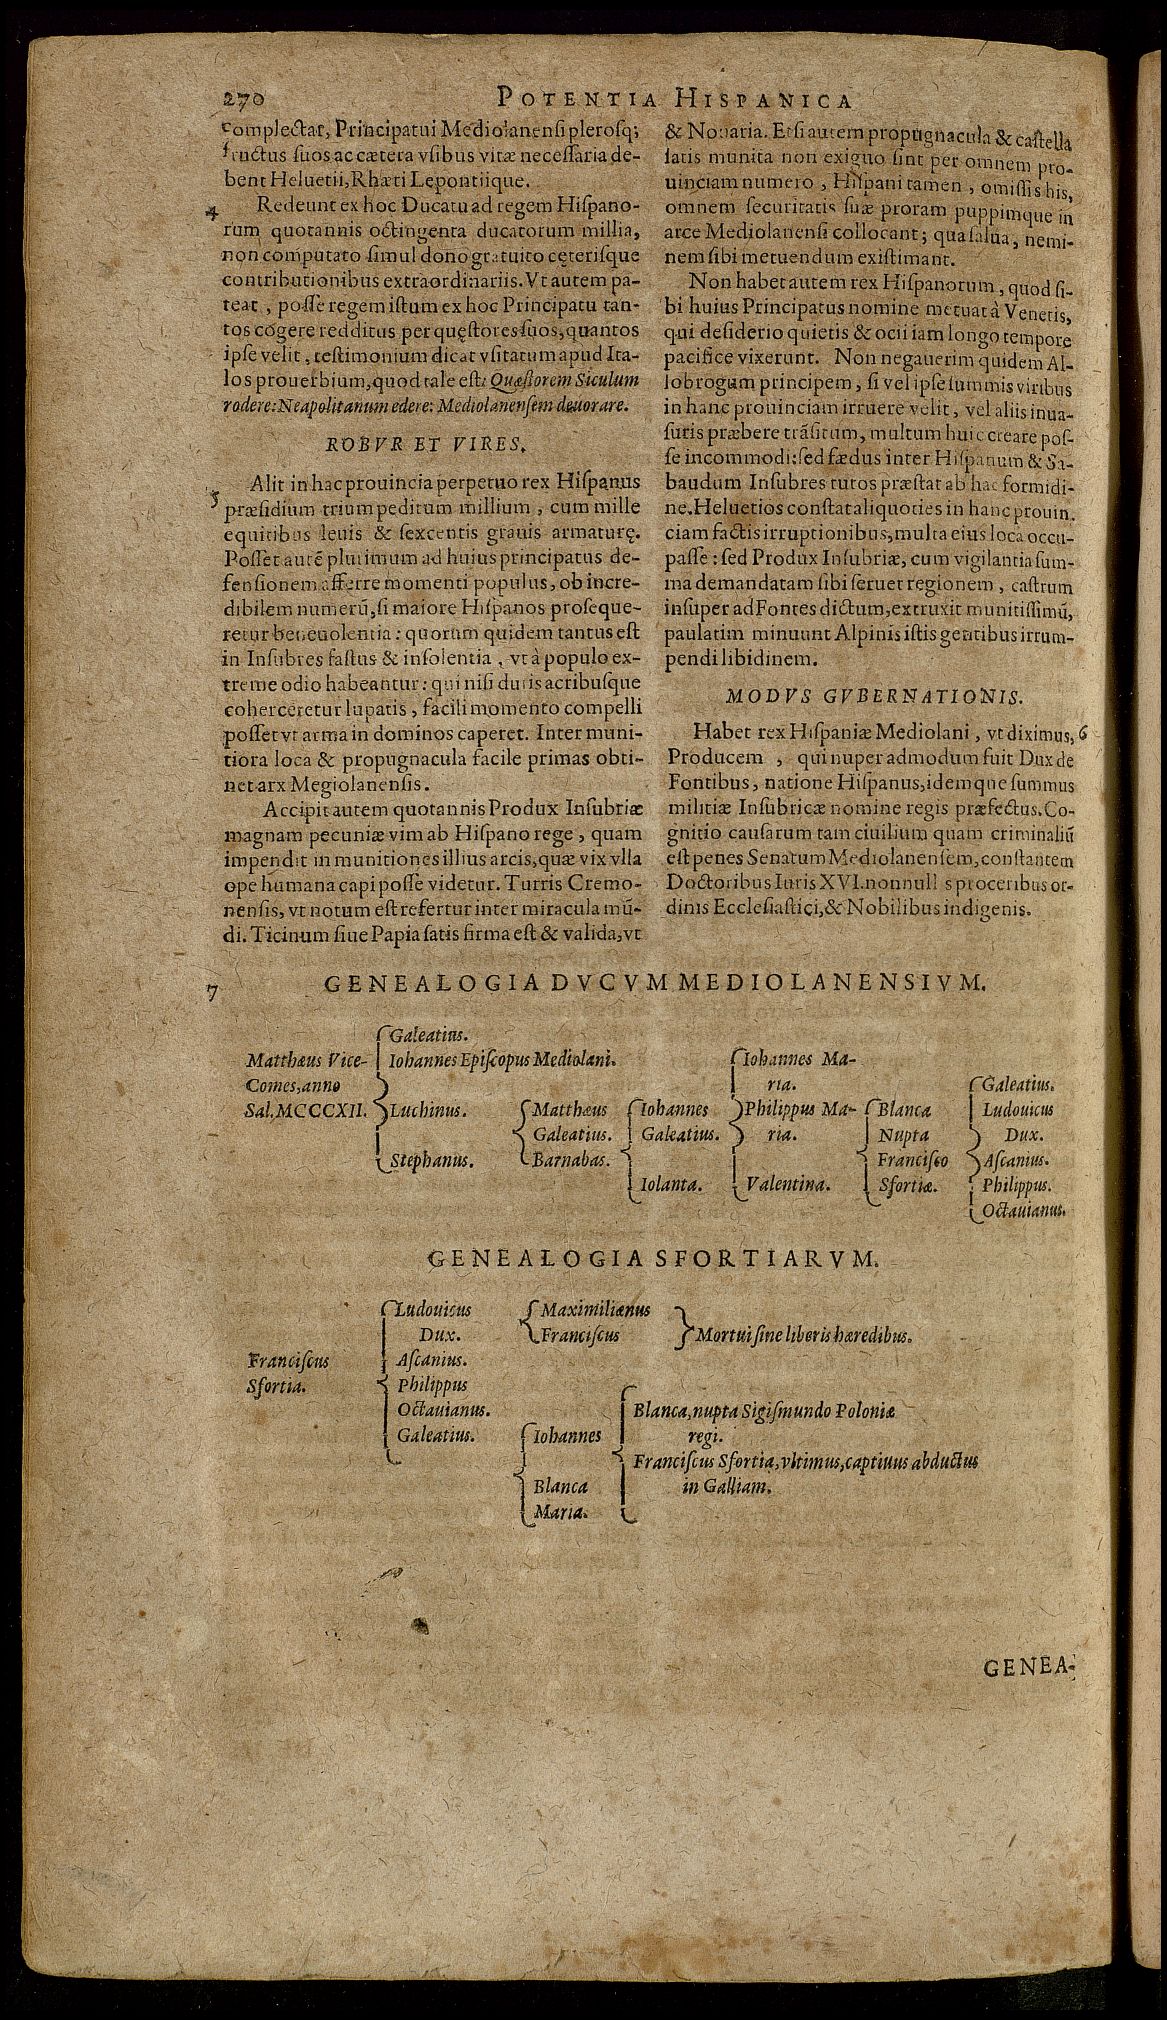 270
POTENTIA HISPANICA
complectar, Principatui Mediolanensi plerosq;
fructus suos ac cætera vsibus vitæ necessaria de-
bent Heluetii, Rhæti Lepontiique.
4
Redeunt ex hoc Ducatu ad regem Hispano-
rum quotannis octingenta ducatorum millia,
non computato simul dono gratuito cęterisque
contributionibus extraordinariis. Vt autem pa-
teat, posse regem istum ex hoc Principatu tan-
tos cogere redditus per quęstores suos, quantos
ipse velit, testimonium dicat vsitatum apud Ita-
los prouerbium, quod tale est: Quæstorem Siculum
rodere: Neapolitanum edere: Mediolanensem deuorare.
ROBVR ET VIRES.
5
Alit in hac prouincia perpetuo rex Hispanus
præsidium trium peditum millium, cum mille
equitibus leuis & sexcentis grauis armaturę.
Posset autē plurimum ad huius principatus de-
fensionem afferre momenti populus, ob incre-
dibilem numerū, si maiore Hispanos proseque-
retur beneuolentia: quorum quidem tantus est
in Insubres fastus & insolentia, vt à populo ex-
treme odio habeantur: qui nisi duris acribusque
coherceretur lupatis, facili momento compelli
posset vt arma in dominos caperet. Inter muni-
tiora loca & propugnacula facile primas obti-
net arx Megiolanensis.
Accipit autem quotannis Produx Insubriæ
magnam pecuniæ vim ab Hispano rege, quam
impendit in munitiones illius arcis, quæ vix vlla
ope humana capi posse videtur. Turris Cremo-
nensis, vt notum est refertur inter miracula mū-
di. Ticinum siue Papia satis firma est & valida, vt
& Nouaria. Etsi autem propugnacula & castella
satis munita non exiguo sint per omnem pro-
uinciam numero, Hispani tamen, omissis his,
omnem securitatis suæ proram puppimque in
arce Mediolanensi collocant; qua salua, nemi-
nem sibi metuendum existimant.
Non habet autem rex Hispanorum, quod si-
bi huius Principatus nomine metuat à Venetis,
qui desiderio quietis & ocii iam longo tempore
pacifice vixerunt. Non negauerim quidem Al-
lobrogum principem, si vel ipse summis viribus
in hanc prouinciam irruere velit, vel aliis inua-
suris præbere trāsitum, multum huic creare pos-
se incommodi: sed fædus inter Hispanum & Sa-
baudum Insubres tutos præstat ab hac formidi-
ne. Heluetios constat aliquoties in hanc prouin.
ciam factis irruptionibus, multa eius loca occu-
passe: sed Produx Insubriæ, cum vigilantia sum-
ma demandatam sibi seruet regionem, castrum
insuper ad Fontes dictum, extruxit munitissimū,
paulatim minuunt Alpinis istis gentibus irrum-
pendi libidinem.
MODVS GVBERNATIONIS.
Habet rex Hispaniæ Mediolani, vt diximus, 6
Producem, qui nuper admodum fuit Dux de
Fontibus, natione Hispanus, idemque summus
militiæ Insubricæ nomine regis præfectus. Co-
gnitio causarum tam ciuilium quam criminaliū
est penes Senatum Mediolanensem, constantem
Doctoribus Iuris XVI. nonnull s proceribus or-
dinis Ecclesiastici, & Nobilibus indigenis.
7
GENEALOGIA DVCVM MEDIOLANENSIVM.
Galeatius.
Matthæus Vice- Iohannes Episcopus Mediolani. Iohannes Ma-
Comes, anno ria. Galeatius.
Sal, MCCCXII. Luchinus. Matthæus Iohannes Philippus Ma- Blanca Ludouicus
Galeatius. Galeatius. ria. Nupta Dux.
Stephanus. Barnabas. Francisco Ascanius.
Iolanta. Valentina. Sfortiæ. Philippus.
Octauianus.
GENEALOGIA SFORTIARVM.
Ludouicus Maximilianus
Dux. Franciscus Mortui sine liberis hæredibus.
Franciscus Ascanius.
Sfortia. Philippus
Octauianus. Blanca, nupta Sigismundo Poloniæ
Galeatius. Iohannes regi.
Franciscus Sfortia, vltimus, captiuus abductus
Blanca in Galliam.
Maria.
GENEA-